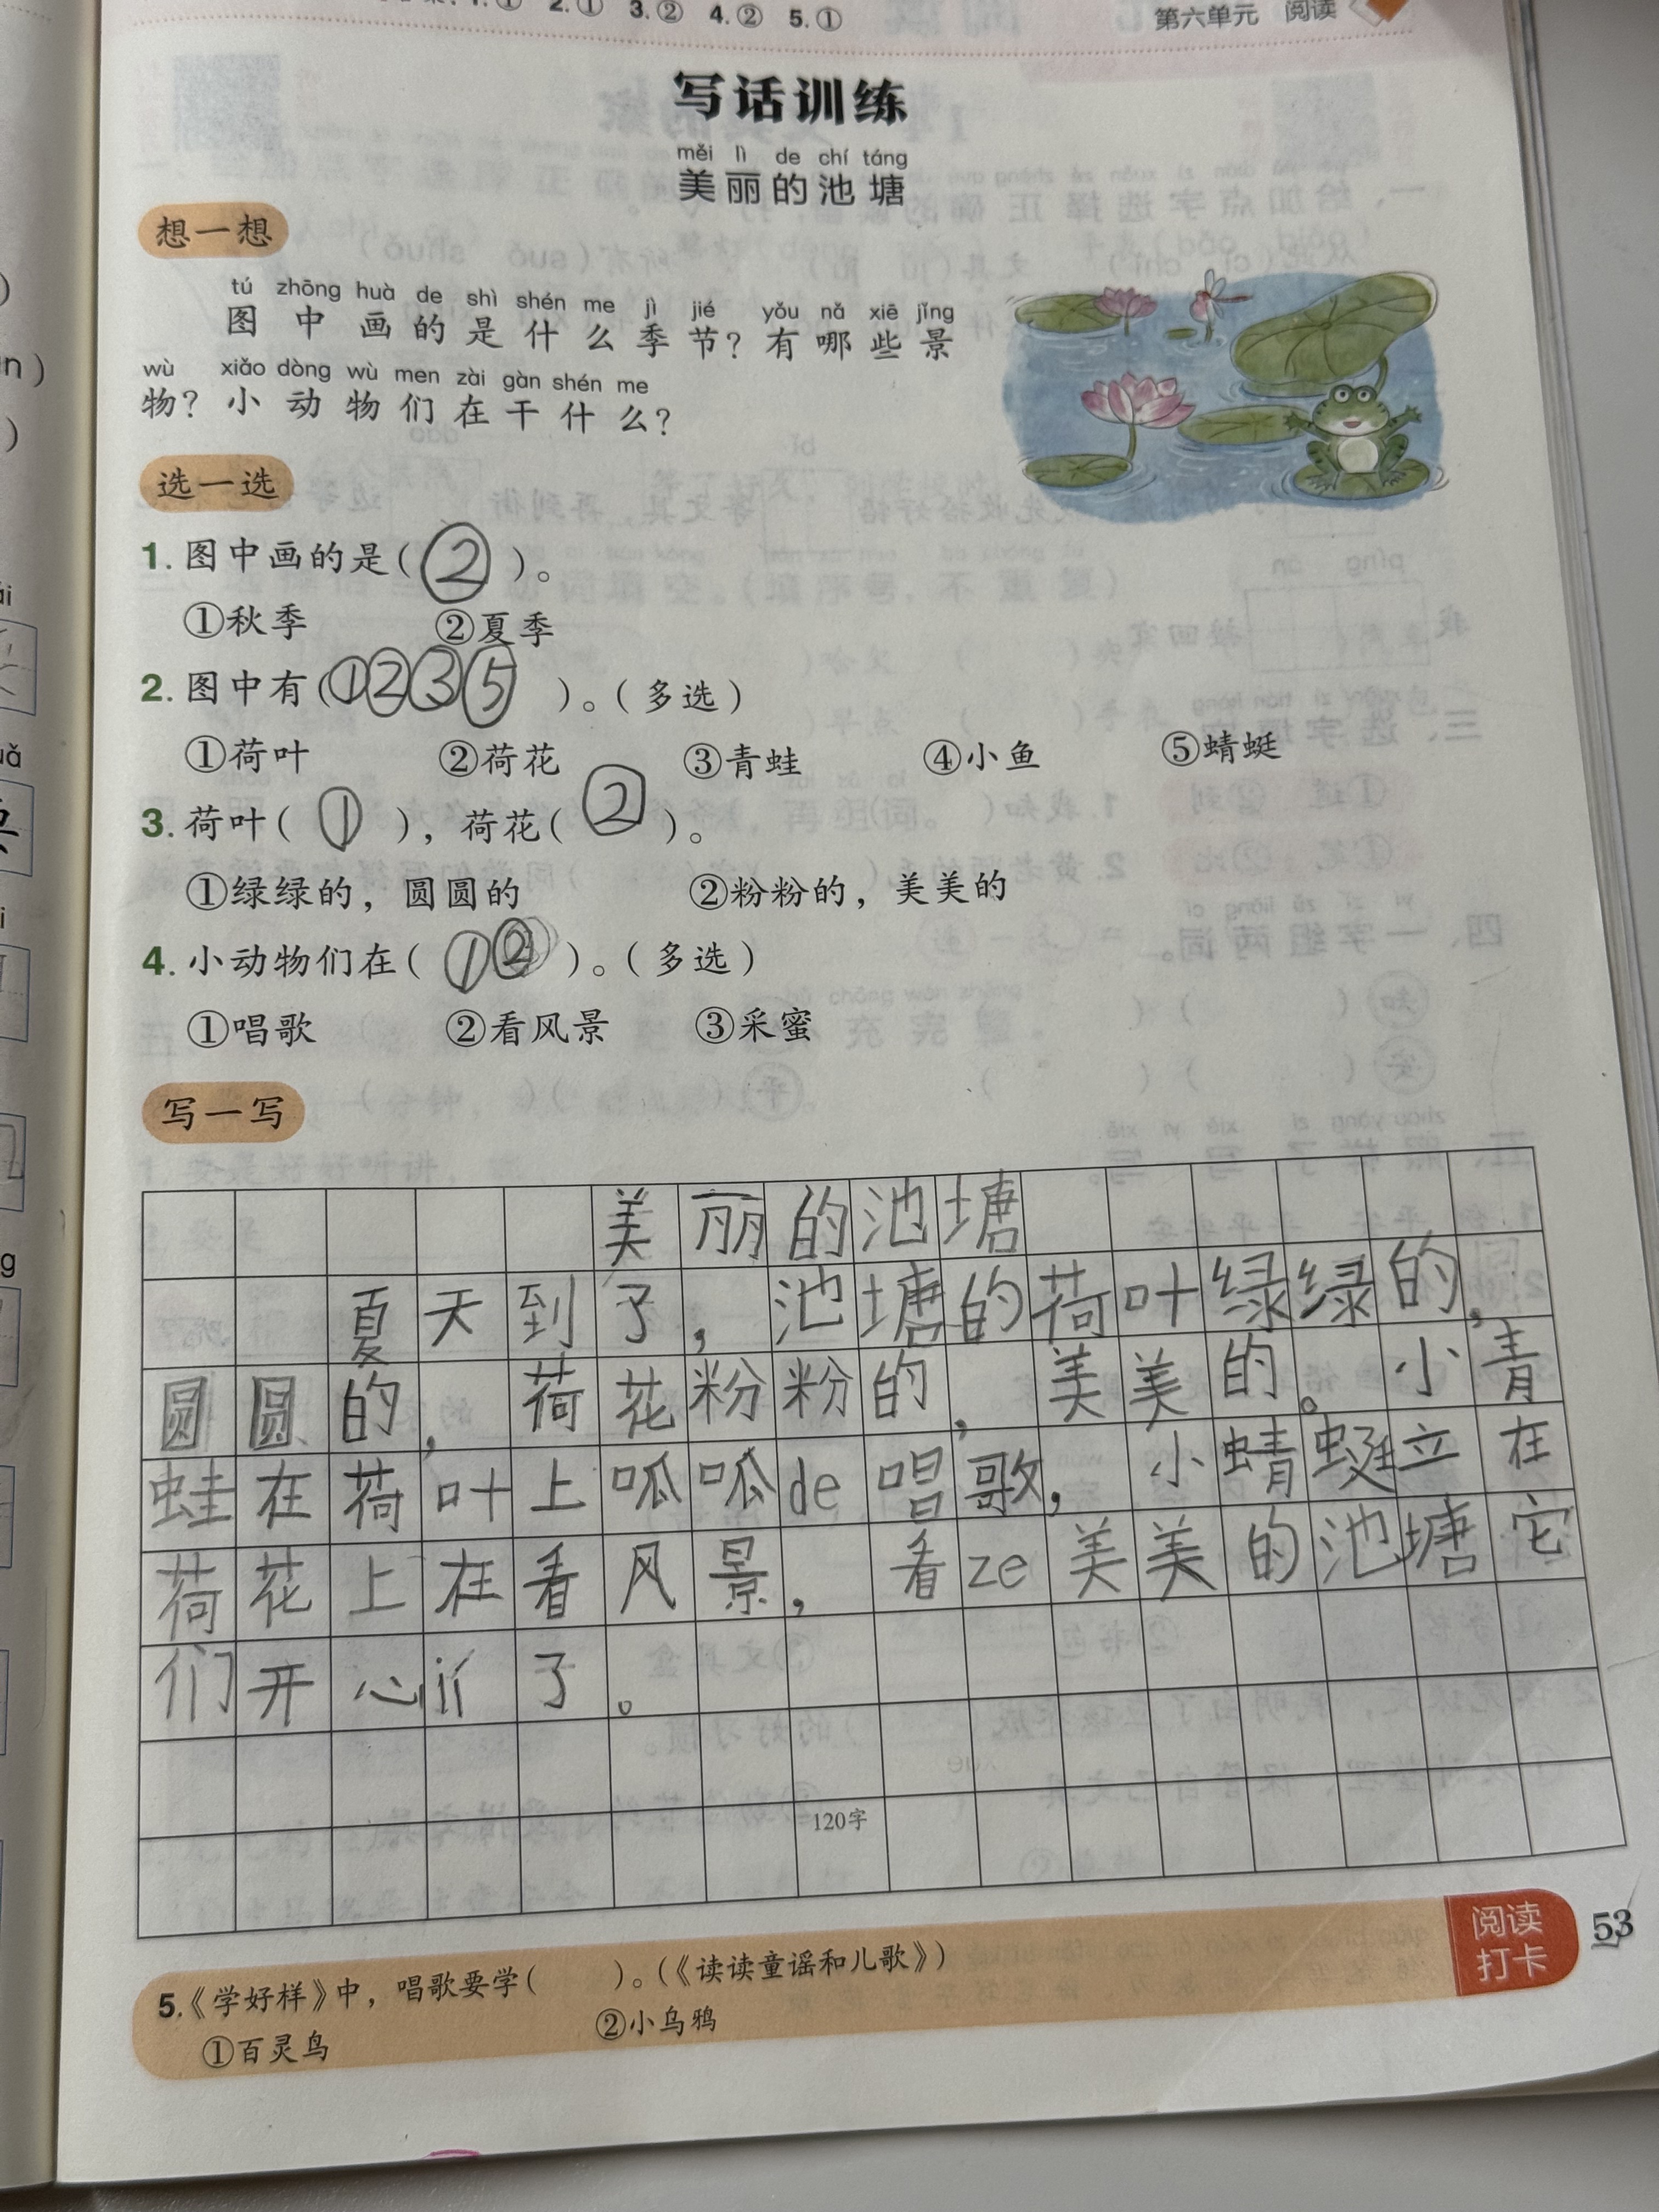 1.① 2.① 3.② 4.② 5.①
第六单元 阅读
写话训练
měi lì de chí táng
美丽的池塘
想一想
tú zhōng huà de shì shén me jì jié yǒu nǎ xiē jǐng
图中画的是什么季节？有哪些景
wù xiǎo dòng wù men zài gàn shén me
物？小动物们在干什么？
选一选
1. 图中画的是(②)。
①秋季 ②夏季
2. 图中有(①②③⑤)。(多选)
①荷叶 ②荷花 ③青蛙 ④小鱼 ⑤蜻蜓
3. 荷叶(①)，荷花(②)。
①绿绿的，圆圆的 ②粉粉的，美美的
4. 小动物们在(①②)。(多选)
①唱歌 ②看风景 ③采蜜
写一写
美丽的池塘
夏天到了，池塘的荷叶绿绿的，
圆圆的，荷花粉粉的，美美的。小青
蛙在荷叶上呱呱de唱歌，小蜻蜓立在
荷花上在看风景，看ze美美的池塘它
们开心 了。
120字
5.《学好样》中，唱歌要学( )。(《读读童谣和儿歌》)
①百灵鸟 ②小乌鸦
阅读
打卡
53